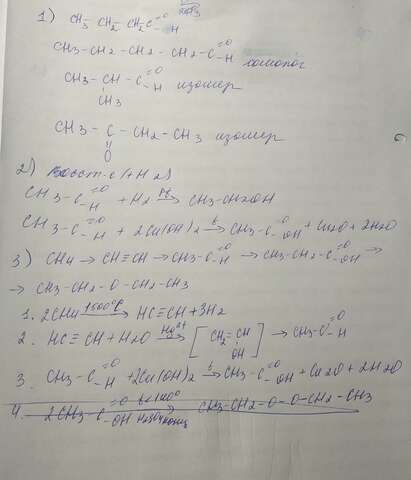 1) CH3-CH2-CH2-C=O
H
CH3-CH2-CH2-CH2-C=O
H гомолог
CH3-CH-C=O
H изомер
CH3
CH3-C-CH2-CH3 изомер
O
2)
CH3-C=O
H +H2 → CH3-CH2OH
CH3-C=O
H + 2Cu(OH)2 t→ CH3-C=O
OH + Cu2O + 2H2O
3) CH4 → CH≡CH → CH3-C=O
H → CH3-CH2-C=O
OH →
→ CH3-CH2-O-CH2-CH3
1. 2CH4 1500°C→ HC≡CH + 3H2
2. HC≡CH + H2O Hg2+→ [CH2=CH
OH] → CH3-C=O
H
3. CH3-C=O
H + 2Cu(OH)2 t→ CH3-C=O
OH + Cu2O + 2H2O
4. 2CH3-C=O
OH H2SO4 конц CH3-CH2-O-O-CH2-CH3